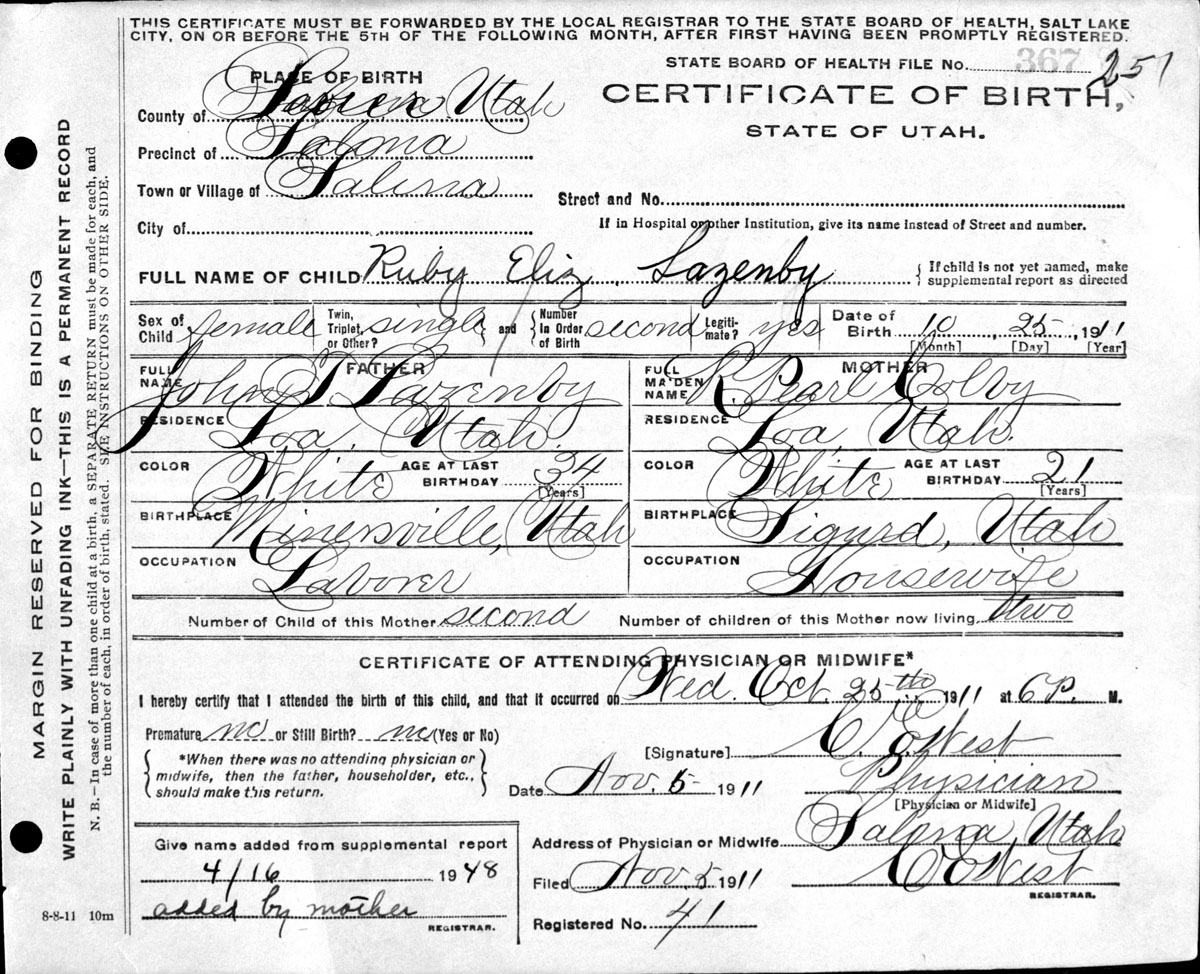 THIS CERTIFICATE MUST BE FORWARDED BY THE LOCAL REGISTRAR TO THE STATE BOARD OF HEALTH, SALT LAKE
CITY, ON OR BEFORE THE 5TH OF THE FOLLOWING MONTH, AFTER FIRST HAVING BEEN PROMPTLY REGISTERED.
STATE BOARD OF HEALTH FILE No. 367 251
PLACE OF BIRTH
CERTIFICATE OF BIRTH,
STATE OF UTAH.
County of Utah
Precinct of Salina
Town or Village of Salina
Street and No.
City of
If in Hospital or other Institution, give its name instead of Street and number.
FULL NAME OF CHILD Ruby Eliz Lazenby
{ If child is not yet named, make
supplemental report as directed
Sex of Child female Twin, Triplet, or Other? single and Number In Order of Birth second Legiti-mate? yes Date of Birth 10 25, 1911
[Month] [Day] [Year]
FATHER MOTHER
FULL NAME John T Lazenby FULL MAIDEN NAME R. Pearl Colby
RESIDENCE Loa, Utah. RESIDENCE Loa, Utah.
COLOR White AGE AT LAST BIRTHDAY 34 [Years] COLOR White AGE AT LAST BIRTHDAY 21 [Years]
BIRTHPLACE Minersville, Utah BIRTHPLACE Sigurd, Utah
OCCUPATION Laborer OCCUPATION Housewife
Number of Child of this Mother second Number of children of this Mother now living two
CERTIFICATE OF ATTENDING PHYSICIAN OR MIDWIFE*
I hereby certify that I attended the birth of this child, and that it occurred on Wed. Oct. 25th 1911 at 6 P. M.
Premature no or Still Birth? no (Yes or No)
[Signature] C. E. West
*When there was no attending physician or
midwife, then the father, householder, etc.,
should make this return.
Date Nov. 5 1911 Physician
[Physician or Midwife]
Address of Physician or Midwife Salina, Utah
Filed Nov. 5 1911 C E West
REGISTRAR.
Registered No. 41
Give name added from supplemental report
4/16 1948
added by mother
REGISTRAR.
8-8-11 10m
MARGIN RESERVED FOR BINDING
WRITE PLAINLY WITH UNFADING INK—THIS IS A PERMANENT RECORD
N. B.—In case of more than one child at a birth, a SEPARATE RETURN must be made for each, and
the number of each, in order of birth, stated. SEE INSTRUCTIONS ON OTHER SIDE.